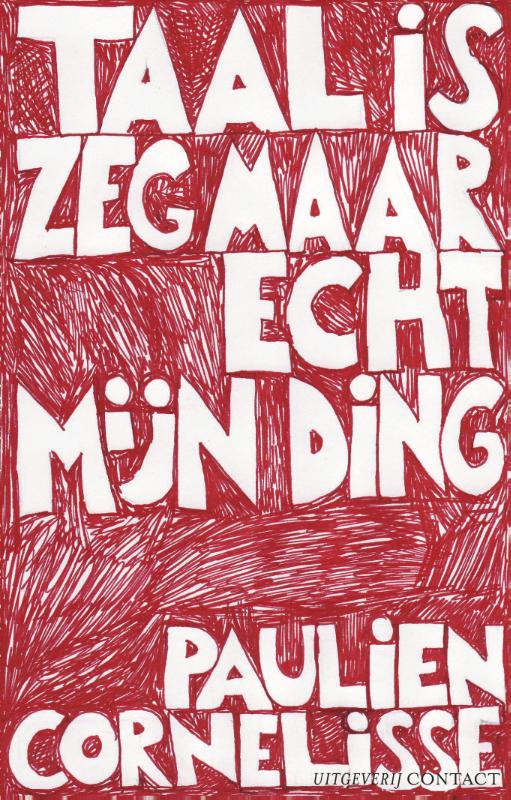 TAAL iS
ZEG MAAR
ECHT
MIJN DiNG
PAULiEN
CORNELiSSE
UITGEVERIJ CONTACT